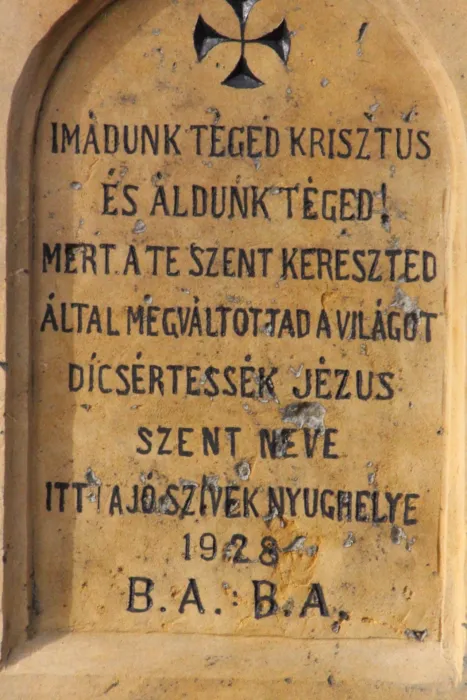 IMÁDUNK TÉGED KRISZTUS
ÉS ÁLDUNK TÉGED!
MERT A TE SZENT KERESZTED
ÁLTAL MEGVÁLTOTTAD A VILÁGOT
DÍCSÉRTESSÉK JÉZUS
SZENT NEVE
ITT A JÓ SZIVEK NYUGHELYE
1928
B. A. B. A.